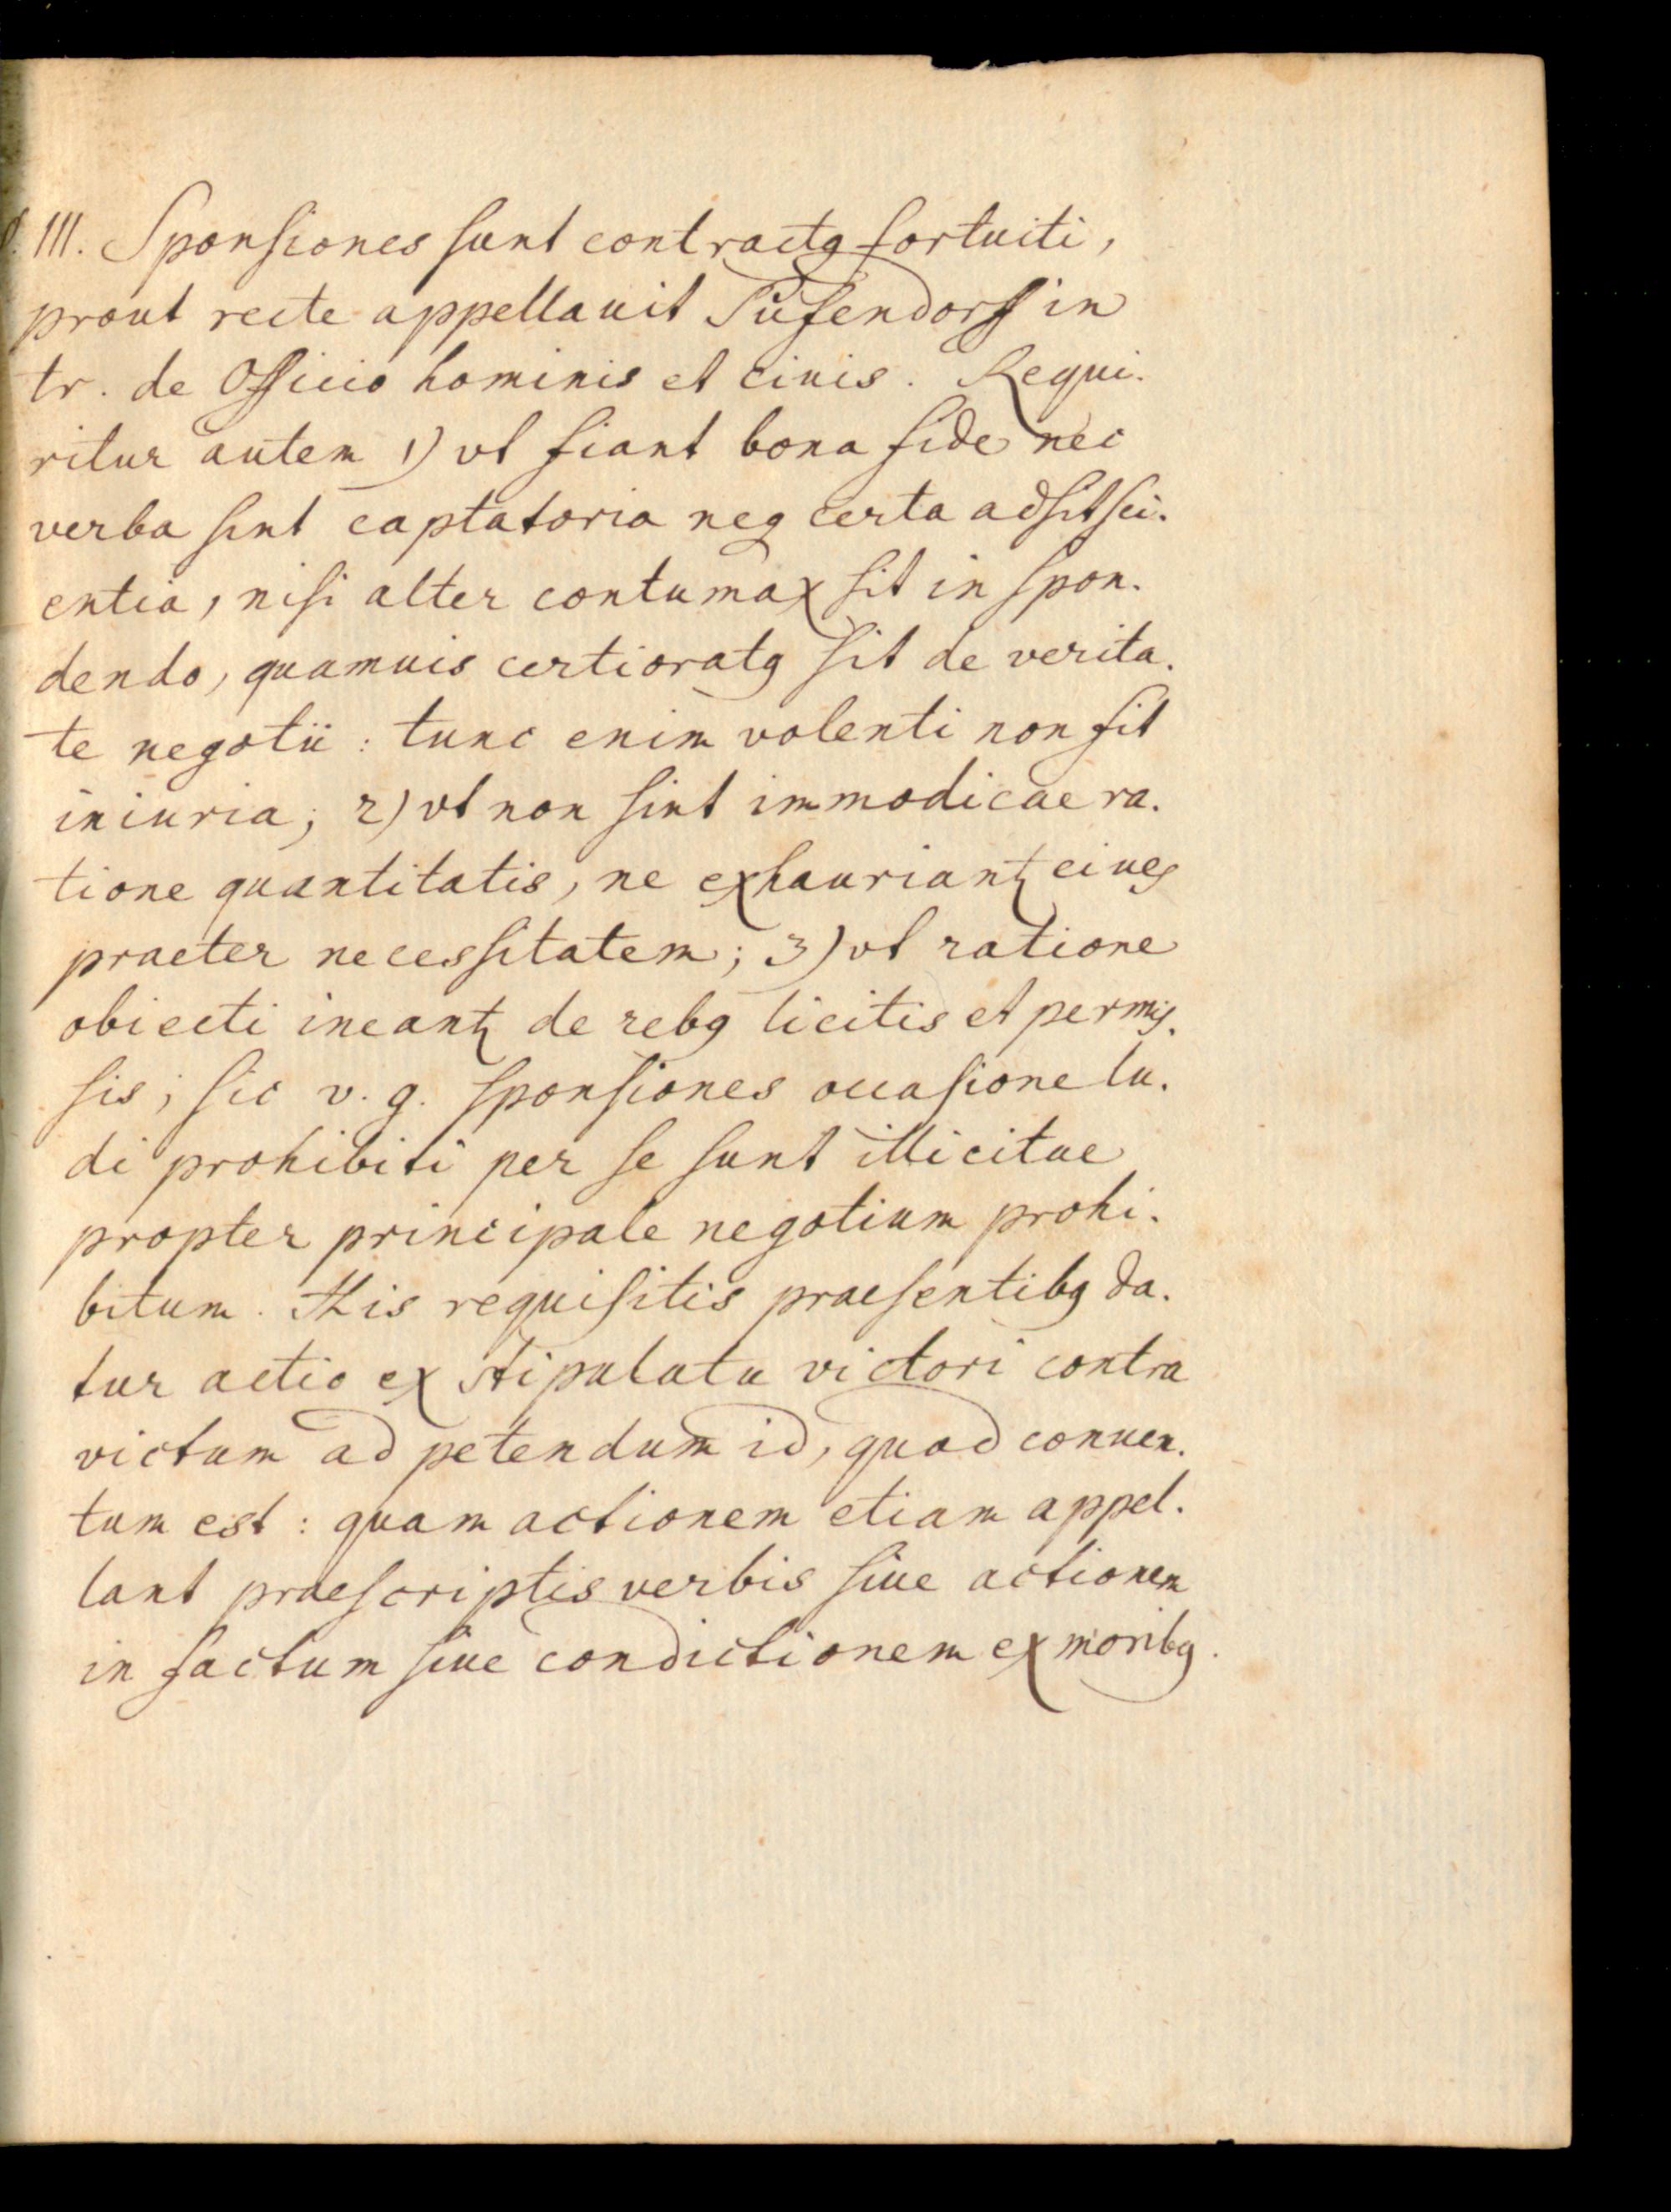 §. III. Sponsiones sunt contractꝰ fortuiti,
prout recte appellauit Pufendorff in
tr. de Officio hominis et ciuis. Requi-
ritur autem 1) vt fiant bona fide nec
verba sint captatoria neq certa adsit sci-
entia, nisi alter contumax sit in spon-
dendo, quamuis certioratꝰ sit de verita-
te negotii: tunc enim volenti non fit
iniuria; 2) vt non sint immodicae ra-
tione quantitatis, ne exhauriantʳ ciues
praeter necessitatem; 3) vt ratione
obiecti ineantʳ de rebꝰ licitis et permis-
sis; sic v. g. sponsiones occasione lu-
di prohibiti per se sunt illicitae
propter principale negotium prohi-
bitum. His requisitis praesentibꝰ da-
tur actio ex stipulatu victori contra
victum ad petendum id, quod conuen-
tum est: quam actionem etiam appel-
lant praescriptis verbis siue actionem
in factum siue condictionem ex moribꝰ.